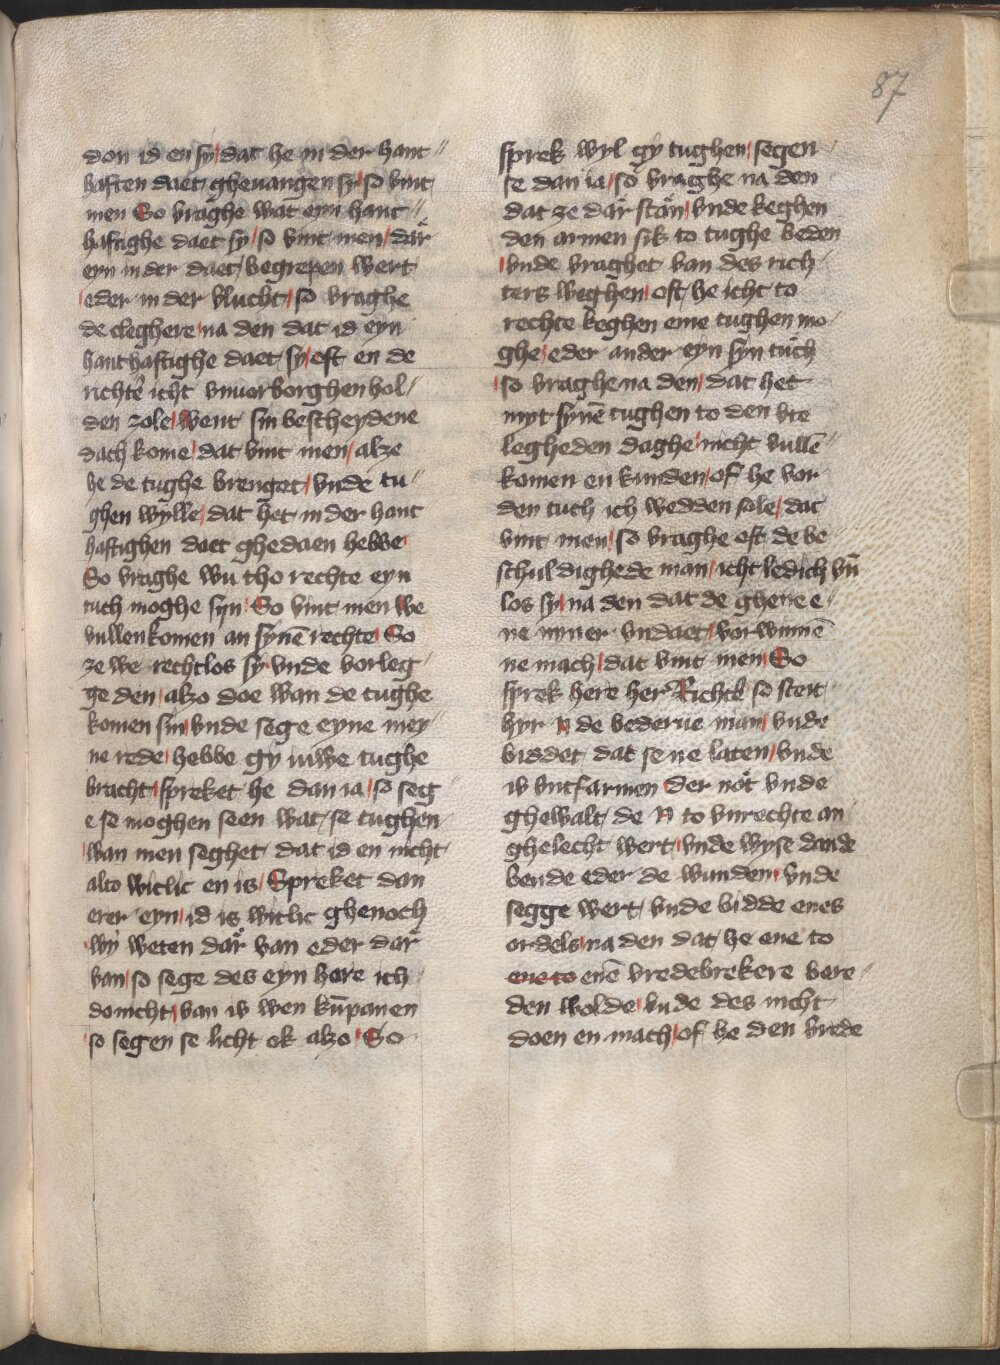 87
don id en sy dat he in der hant //
haften daet gheuangen sy so vint
men So vraghe wat eyn hant //
haftighe daet sy so vint men dar
eyn in der daet begrepen wert
eder in der vlucht so vraghe
de cleghere na den dat id eyn
hanthaftighe daet sy oft en de
richte icht vnuorborghen hol /
den zole Went sin bescheydene
dach kome dat vint men alze
he de tughe brenget vnde tu //
ghen wylle dat het in der hant
haftighen daet ghedaen hebbe
So vraghe wu tho rechte eyn
tuch moghe syn So vint men We
vullenkomen an synē rechte So
ze we rechtlos sy vnde vorleg /
ge den alzo doe wan de tughe
komen sin vnde sege eyne mey /
ne rede hebbe gy iuwe tughe
bracht spreket he dan ia so seg //
e se moghen seen wat se tughen
wan men seghet dat id en nicht
alto witlic en is Spreket dan
erer eyn id is witlic ghenoch
wy weten dar van eder dar
van so sege des eyn here ich
do nicht van iv wen kūpanen
so segen se licht ok alzo So
sprek wyl gy tughen segen
se dan ia so vraghe na den
dat ze dar stan vnde keghen
den armen sik to tughe beden
vnde vraghet van des rich /
ters weghen oft he icht to
rechte keghen eme tughen mo /
ghe eder ander eyn syn tuch
so vraghe na den dat het
myt synē tughen to den vte
legheden daghe nicht vullē /
komen en kunden of he vor
den tuch ich wedden sole dat
vint men so vraghe oft de be
schuldighede man icht ledich vn̄
los sy na den dat de ghene e /
ne nyner vndaet vorwinnē
ne mach dat vint men So
sprek here her Richte so steit
hyr N de bederue man vnde
biddet dat se ne laten vnde
iv vntfarmen der not vnde
ghewalt de N to vnrechte an
ghelecht wert vnde wyse dan de
bende eder de wunden vnde
segge wert vnde bidde enes
ordels na den dat he ene to
ene to enē vredebrekere bere //
den wolde vnde des nicht
doen en mach of he den vrede